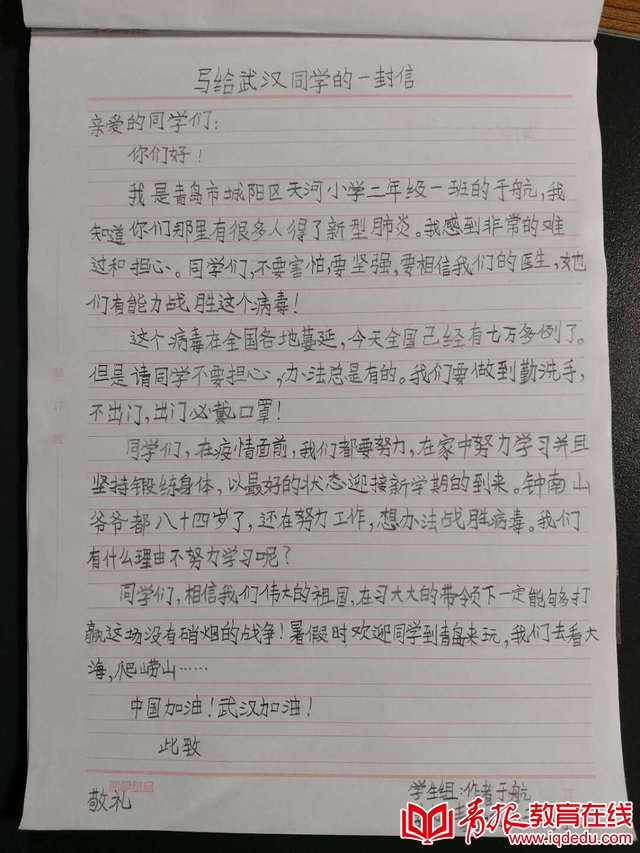 写给武汉同学的一封信
亲爱的同学们：
你们好！
我是青岛市城阳区天河小学二年级一班的于航，我
知道你们那里有很多人得了新型肺炎。我感到非常的难
过和担心。同学们，不要害怕，要坚强，要相信我们的医生，她
们有能力战胜这个病毒！
这个病毒在全国各地蔓延，今天全国已经有七万多例了。
但是请同学不要担心，办法总是有的。我们要做到勤洗手，
不出门，出门必戴口罩！
同学们，在疫情面前，我们都要努力，在家中努力学习并且
坚持锻练身体，以最好的状态迎接新学期的到来。钟南山
爷爷都八十四岁了，还在努力工作，想办法战胜病毒。我们
有什么理由不努力学习呢？
同学们，相信我们伟大的祖国，在习大大的带领下一定能够打
赢这场没有硝烟的战争！暑假时欢迎同学到青岛来玩，我们去看大
海，爬崂山……
中国加油！武汉加油！
此致
敬礼
学生组：作者于航
青报教育在线
www.iqdedu.com